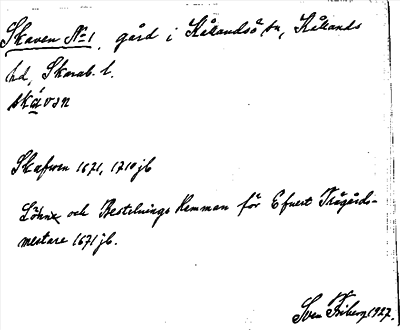 Skaven No 1, gård i Kållandsö sn, Kållands
hd, Skarab. l.
skávən
Skafwen 1671, 1710 jb
Löhnx och Bestelnings Hemman för Efuert Trägårds-
mestare 1671 jb.
Sven Friberg 1927.